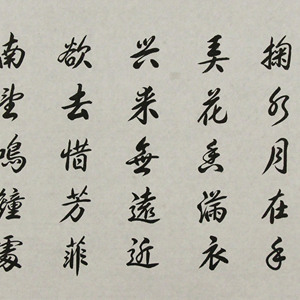 掬水月在手
弄花香滿衣
兴来無遠近
欲去惜芳菲
南望鳴鐘處